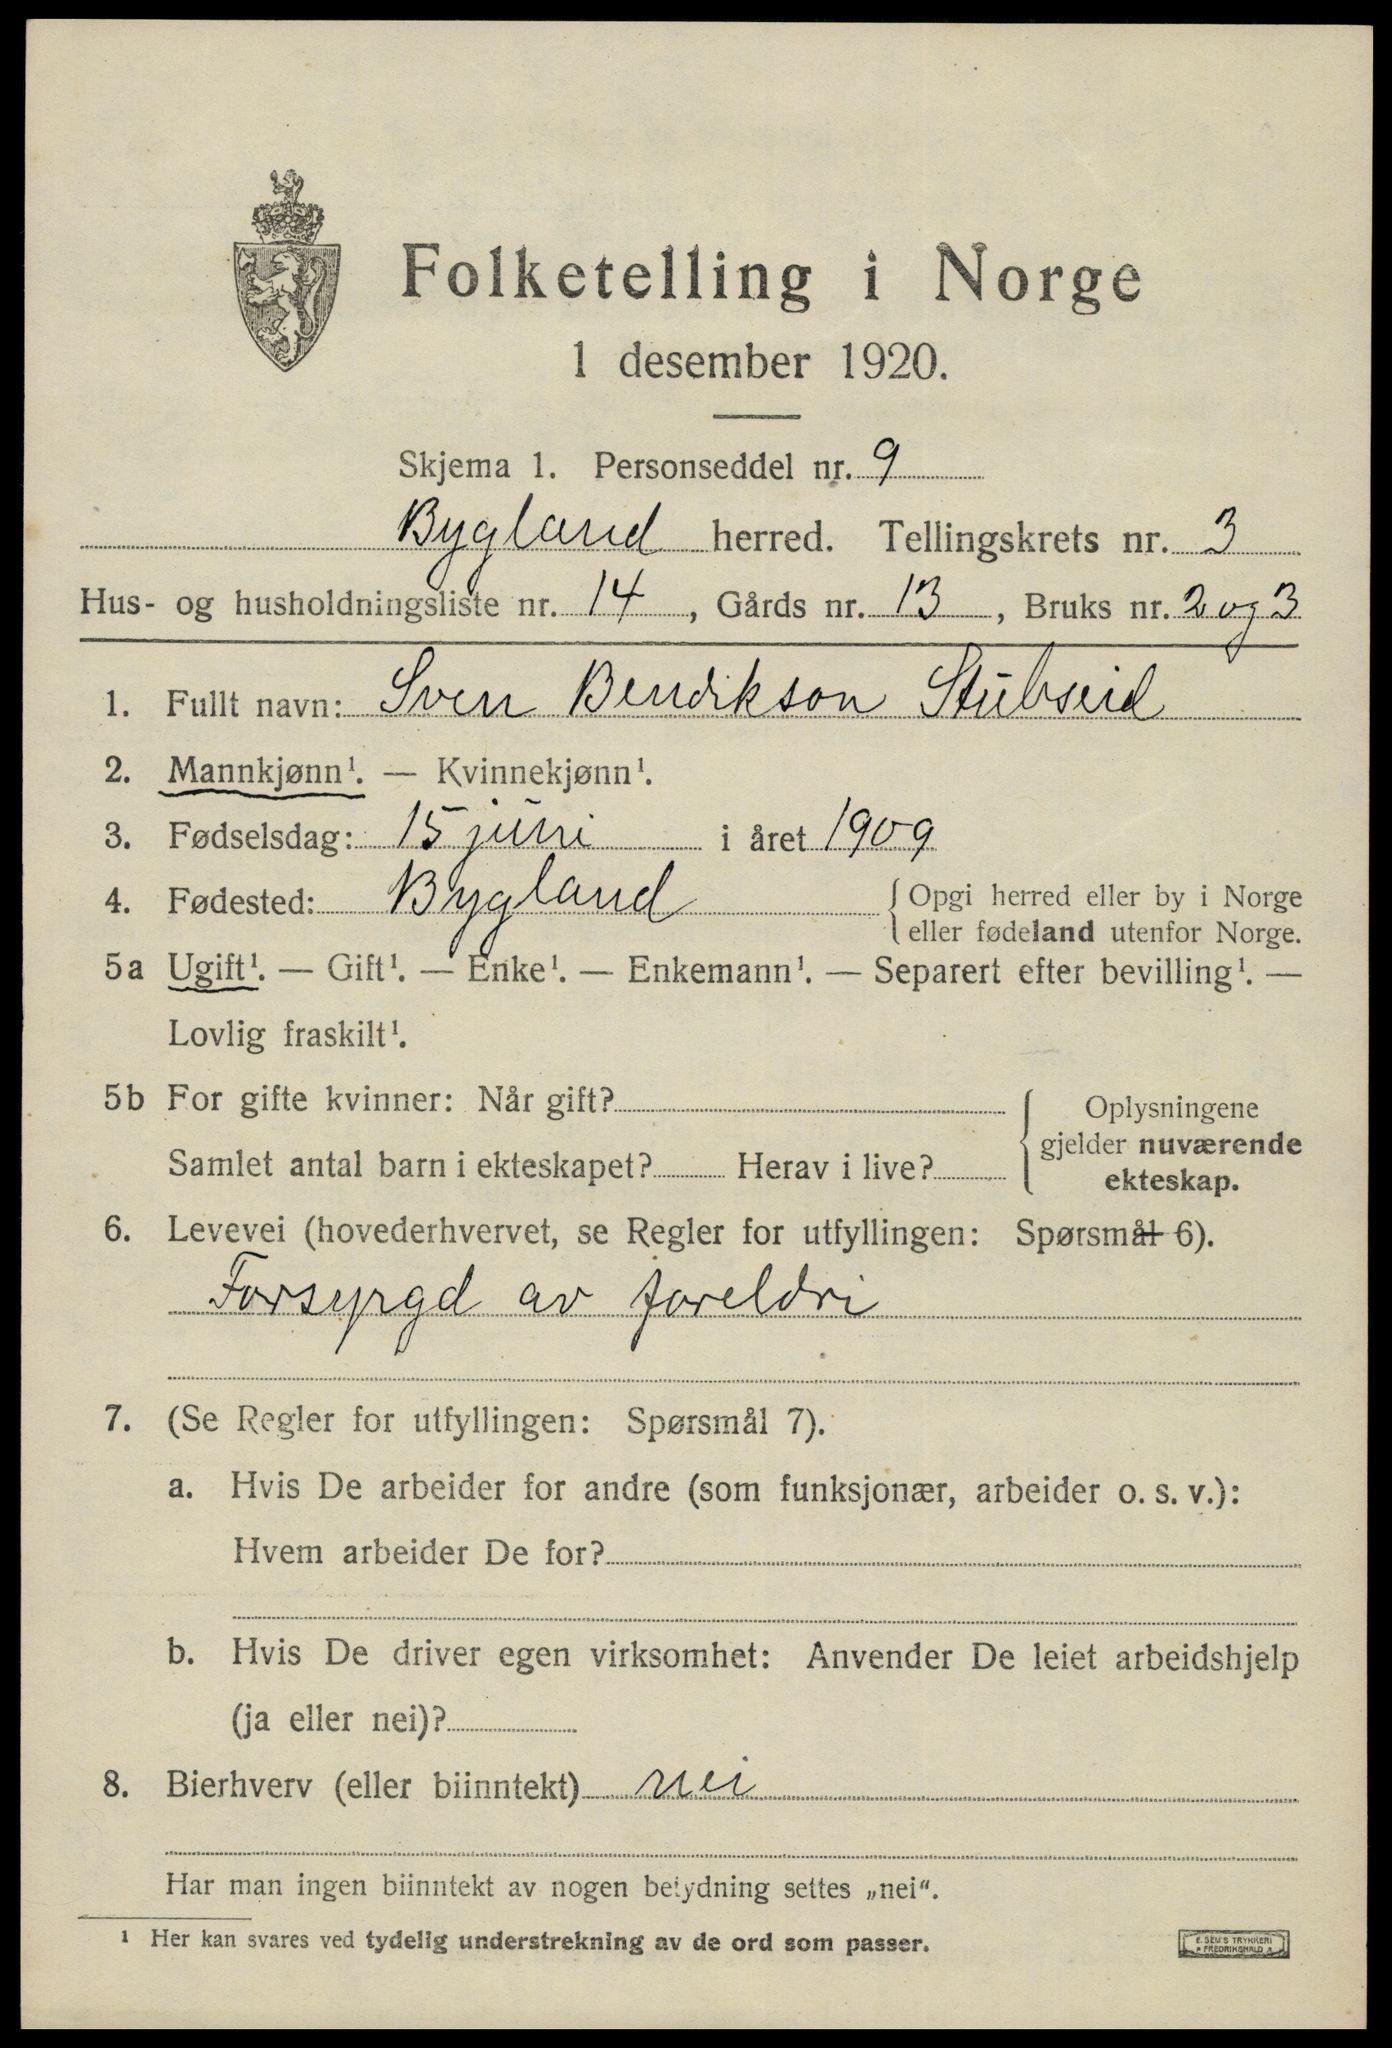 Folketelling i Norge
1 desember 1920.
Skjema 1. Personseddel nr. 9
Bygland herred. Tellingskrets nr. 3
Hus- og husholdningsliste nr. 14, Gårds nr. 13, Bruks nr. 2 og 3
1. Fullt navn: Sven Bendikson Stubseid
2. Mannkjønn¹. — Kvinnekjønn¹.
3. Fødselsdag: 15 juni i året 1909
4. Fødested: Bygland { Opgi herred eller by i Norge
eller fødeland utenfor Norge.
5a Ugift¹. — Gift¹. — Enke¹. — Enkemann¹. — Separert efter bevilling¹. —
Lovlig fraskilt¹.
5b For gifte kvinner: Når gift? Oplysningene
gjelder nuværende
Samlet antal barn i ekteskapet? Herav i live?
ekteskap.
6. Levevei (hovederhvervet, se Regler for utfyllingen: Spørsmål 6).
Forsyrgd av foreldri
7. (Se Regler for utfyllingen: Spørsmål 7).
a. Hvis De arbeider for andre (som funksjonær, arbeider o. s. v.):
Hvem arbeider De for?
b. Hvis De driver egen virksomhet: Anvender De leiet arbeidshjelp
(ja eller nei)?
8. Bierhverv (eller biinntekt) nei
Har man ingen biinntekt av nogen betydning settes „nei“.
¹ Her kan svares ved tydelig understrekning av de ord som passer.
E. SEM'S TRYKKERI
FREDRIKSHALD